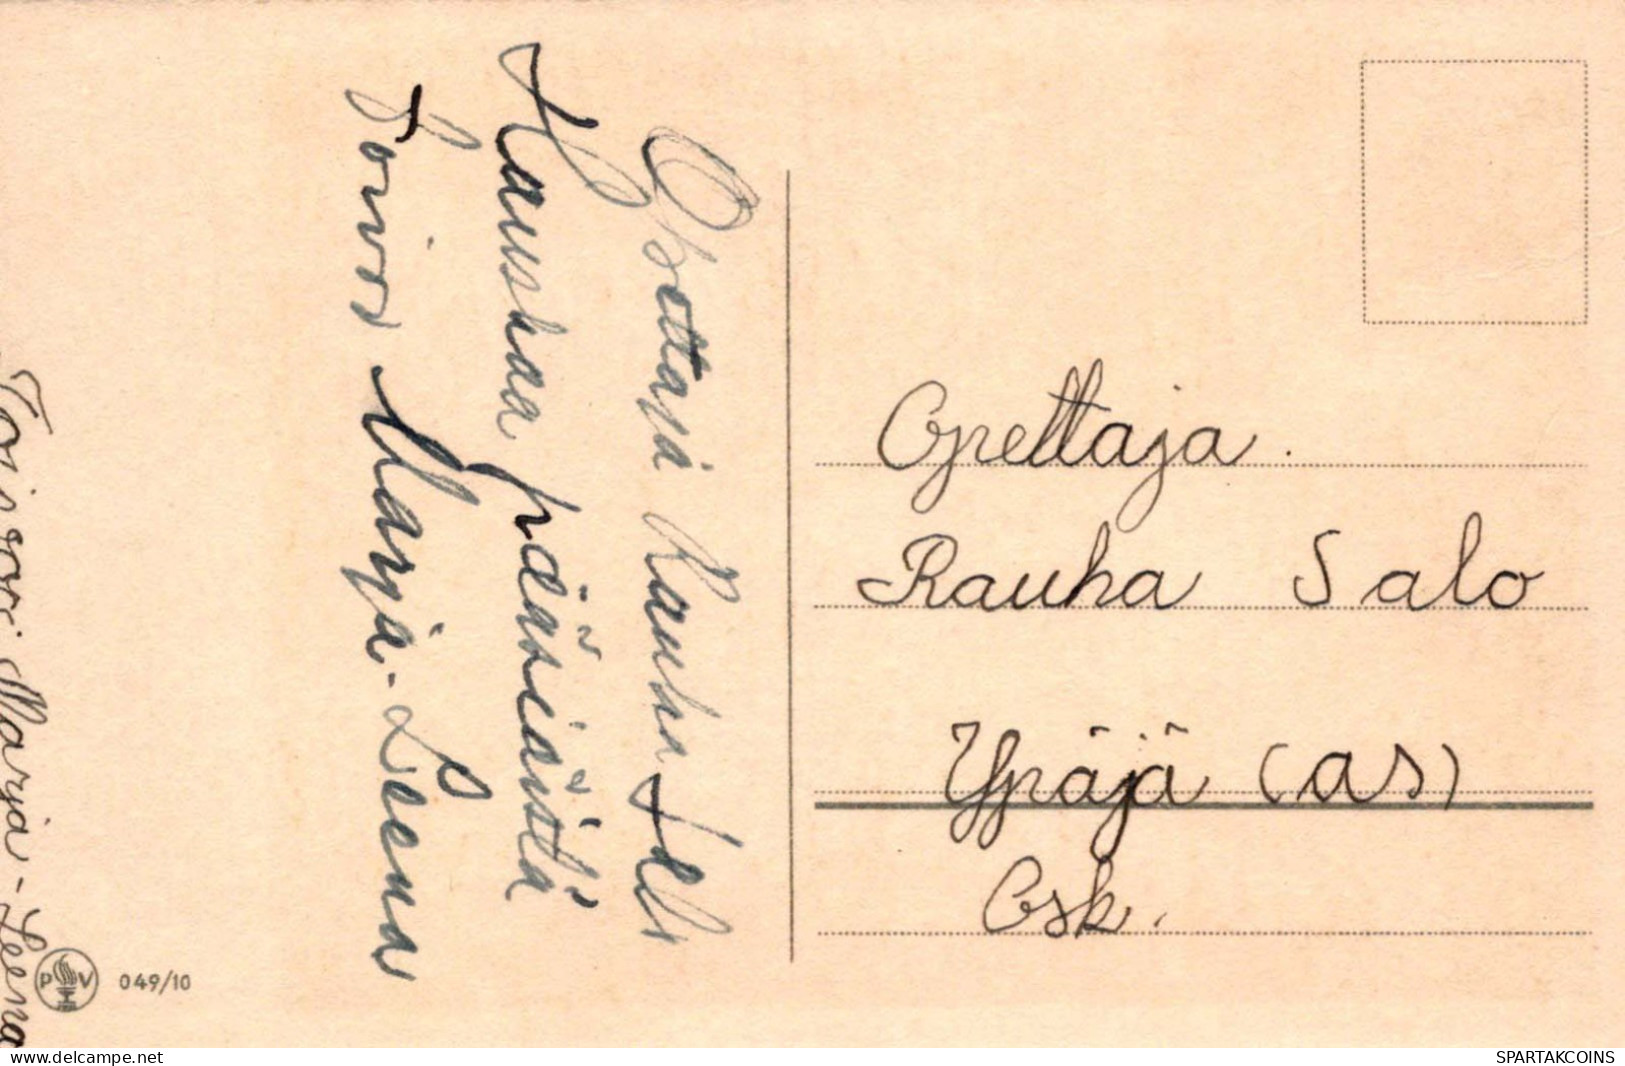 Opettaja.
Rauha Salo
Ypäjä (as)
Osk.
Opettaja Rauha Salo
Hauskaa pääsiäistä
Toivoo Marja-Leena
Toivoo: Marja-Leena
P V 049/10
delcampe.net
SPARTAKCOINS